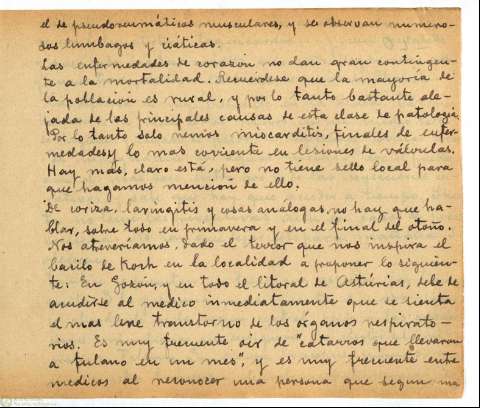 el de pseudoreumáticos musculares, y se observan numero-
sos lumbagos y ciáticas.
Las enfermedades de corazón no dan gran contingen-
te a la mortalidad. Recuérdese que la mayoría de
la población es rural, y por lo tanto bastante ale-
jada de las principales causas de esta clase de patología.
Por lo tanto solo vemos miocarditis, finales de enfer-
medades, y lo mas corriente en lesiones de válvulas.
Hay más, claro está, pero no tiene sello local para
que hagamos mención de ello.
De coriza, laringitis y cosas análogas, no hay que ha-
blar, sobre todo en primavera y en el final del otoño.
Nos atreveríamos, dado el terror que nos inspira el
bacilo de Koch en la localidad a proponer lo siguien-
te: En Gozón, y en todo el litoral de Astúrias, debe de
acudirse al medico inmediatamente que se sienta
el mas leve transtorno de los órganos respirato-
rios. Es muy frecuente oir de "catarros que llevaron
a fulano en un mes", y es muy frecuente entre
medicos al reconocer una persona que segun ma